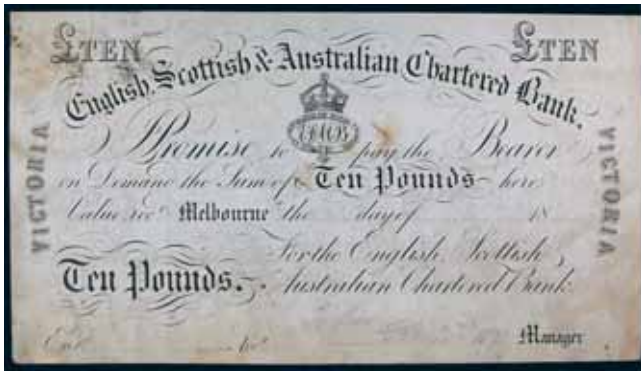 £TEN £TEN
English, Scottish & Australian Chartered Bank.
I Promise to pay the Bearer
on Demand the Sum of Ten Pounds here
Value recd. Melbourne the day of 18
For the English, Scottish &
Ten Pounds. Australian Chartered Bank
Entd. No. Manager
VICTORIA
VICTORIA